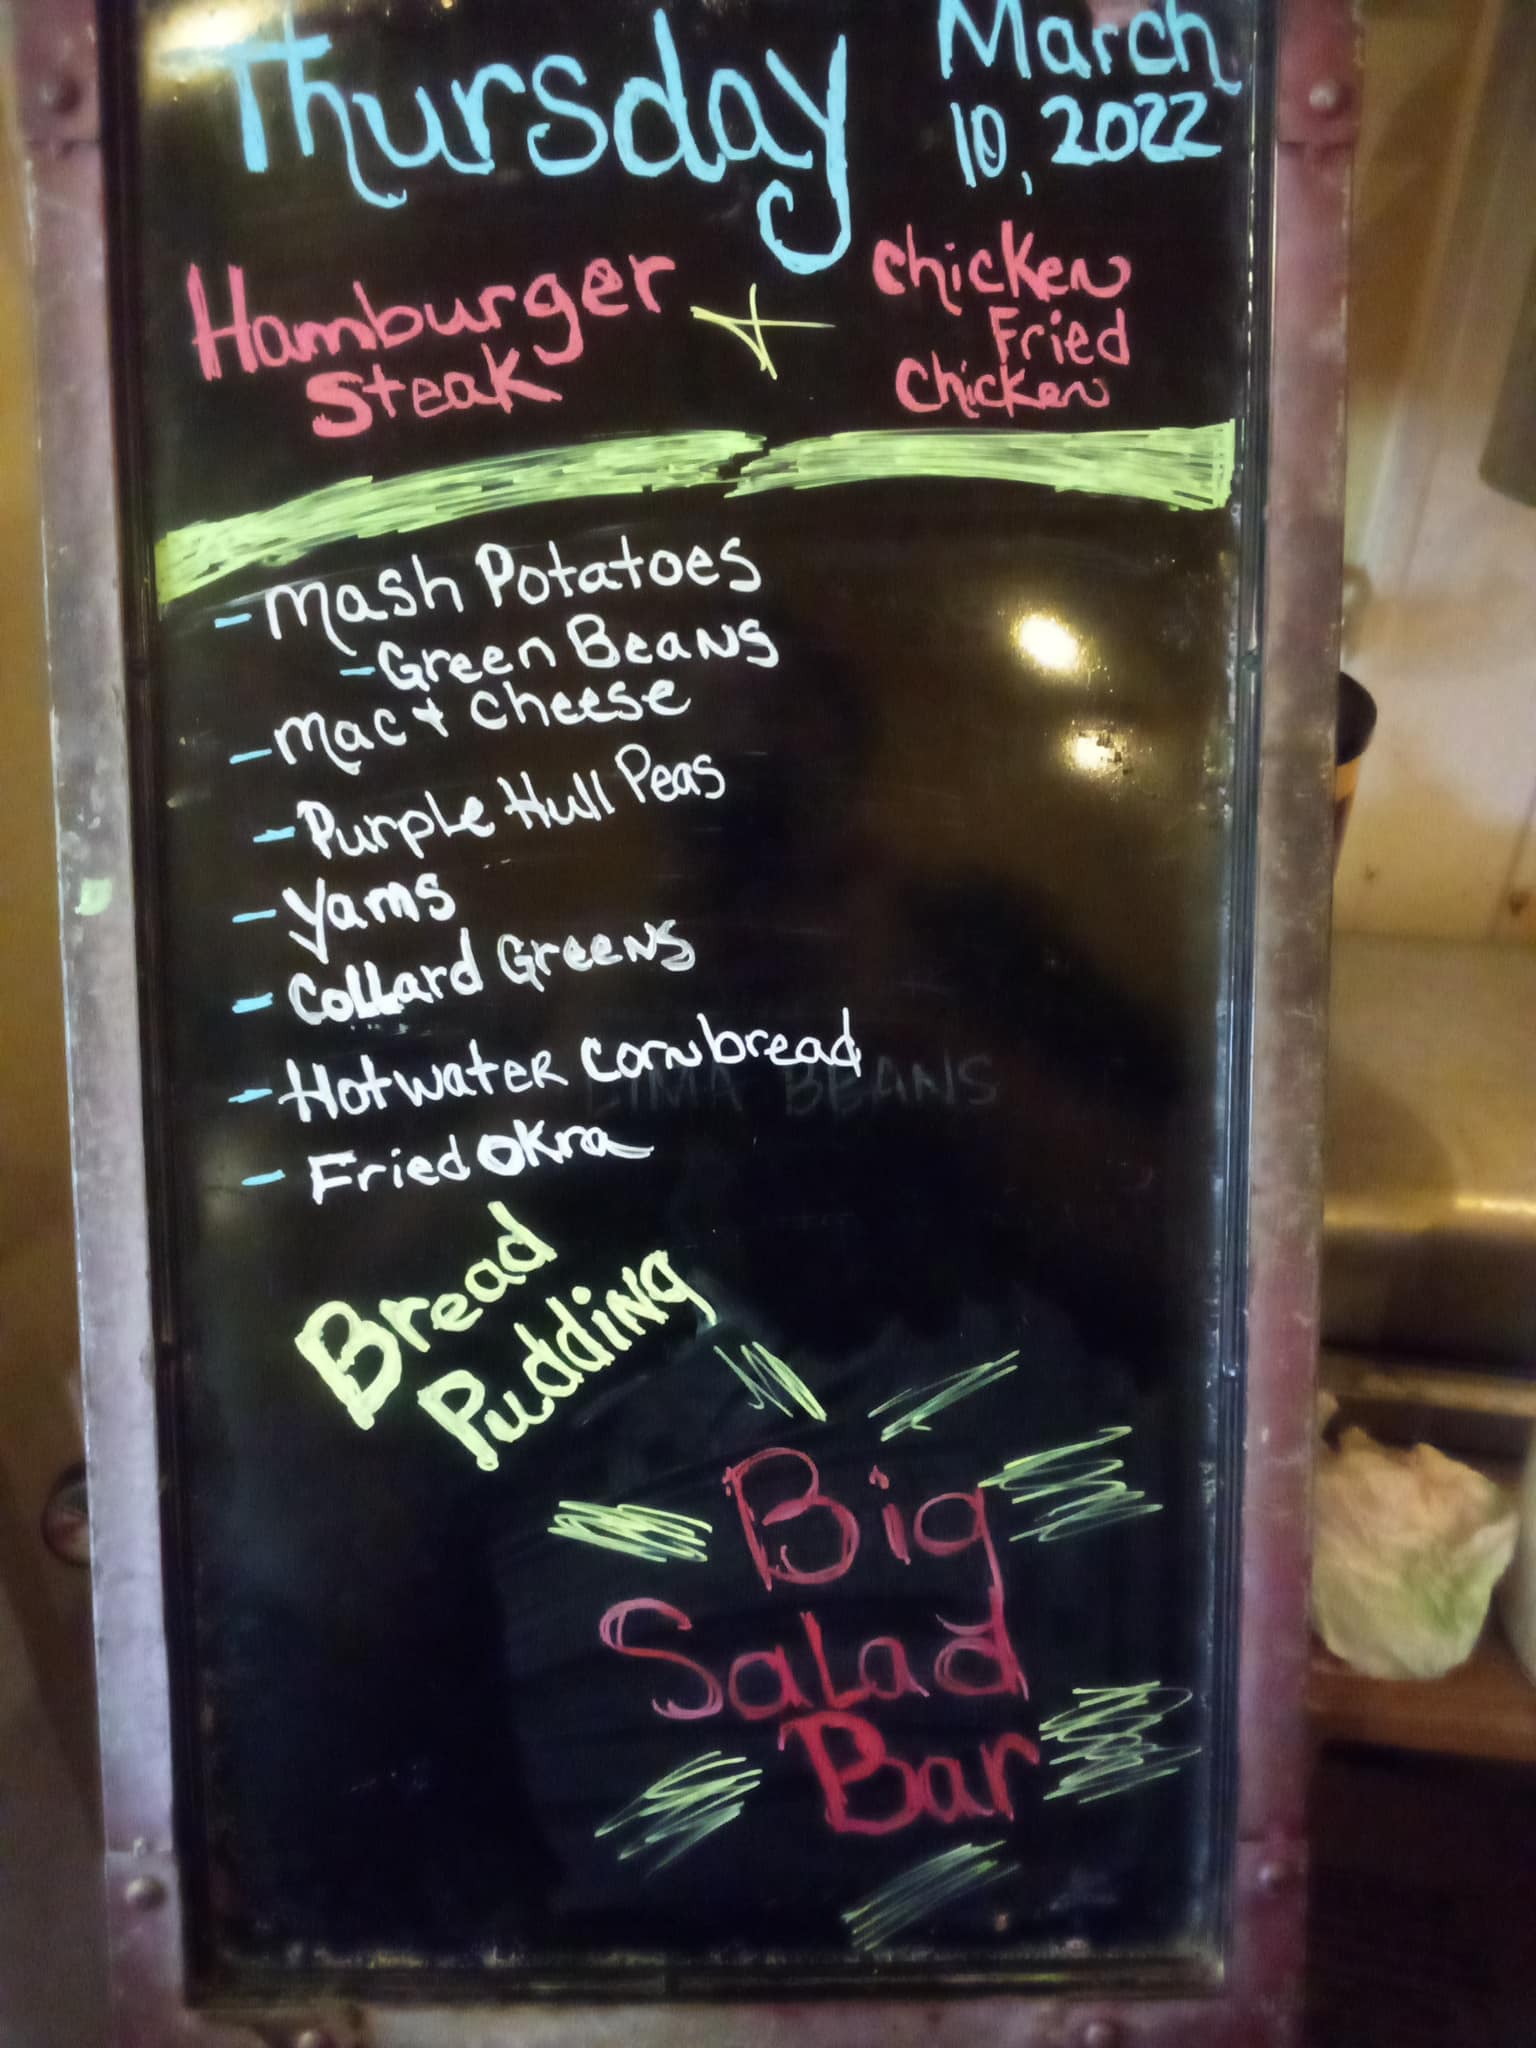 Thursday
March
10, 2022
Hamburger
Steak
+
Chicken
Fried
Chicken
- Mash Potatoes
- Green Beans
- Mac + Cheese
- Purple Hull Peas
- Yams
- Collard Greens
- Hotwater Cornbread
LIMA BEANS
- Fried Okra
Bread
Pudding
Big
Salad
Bar